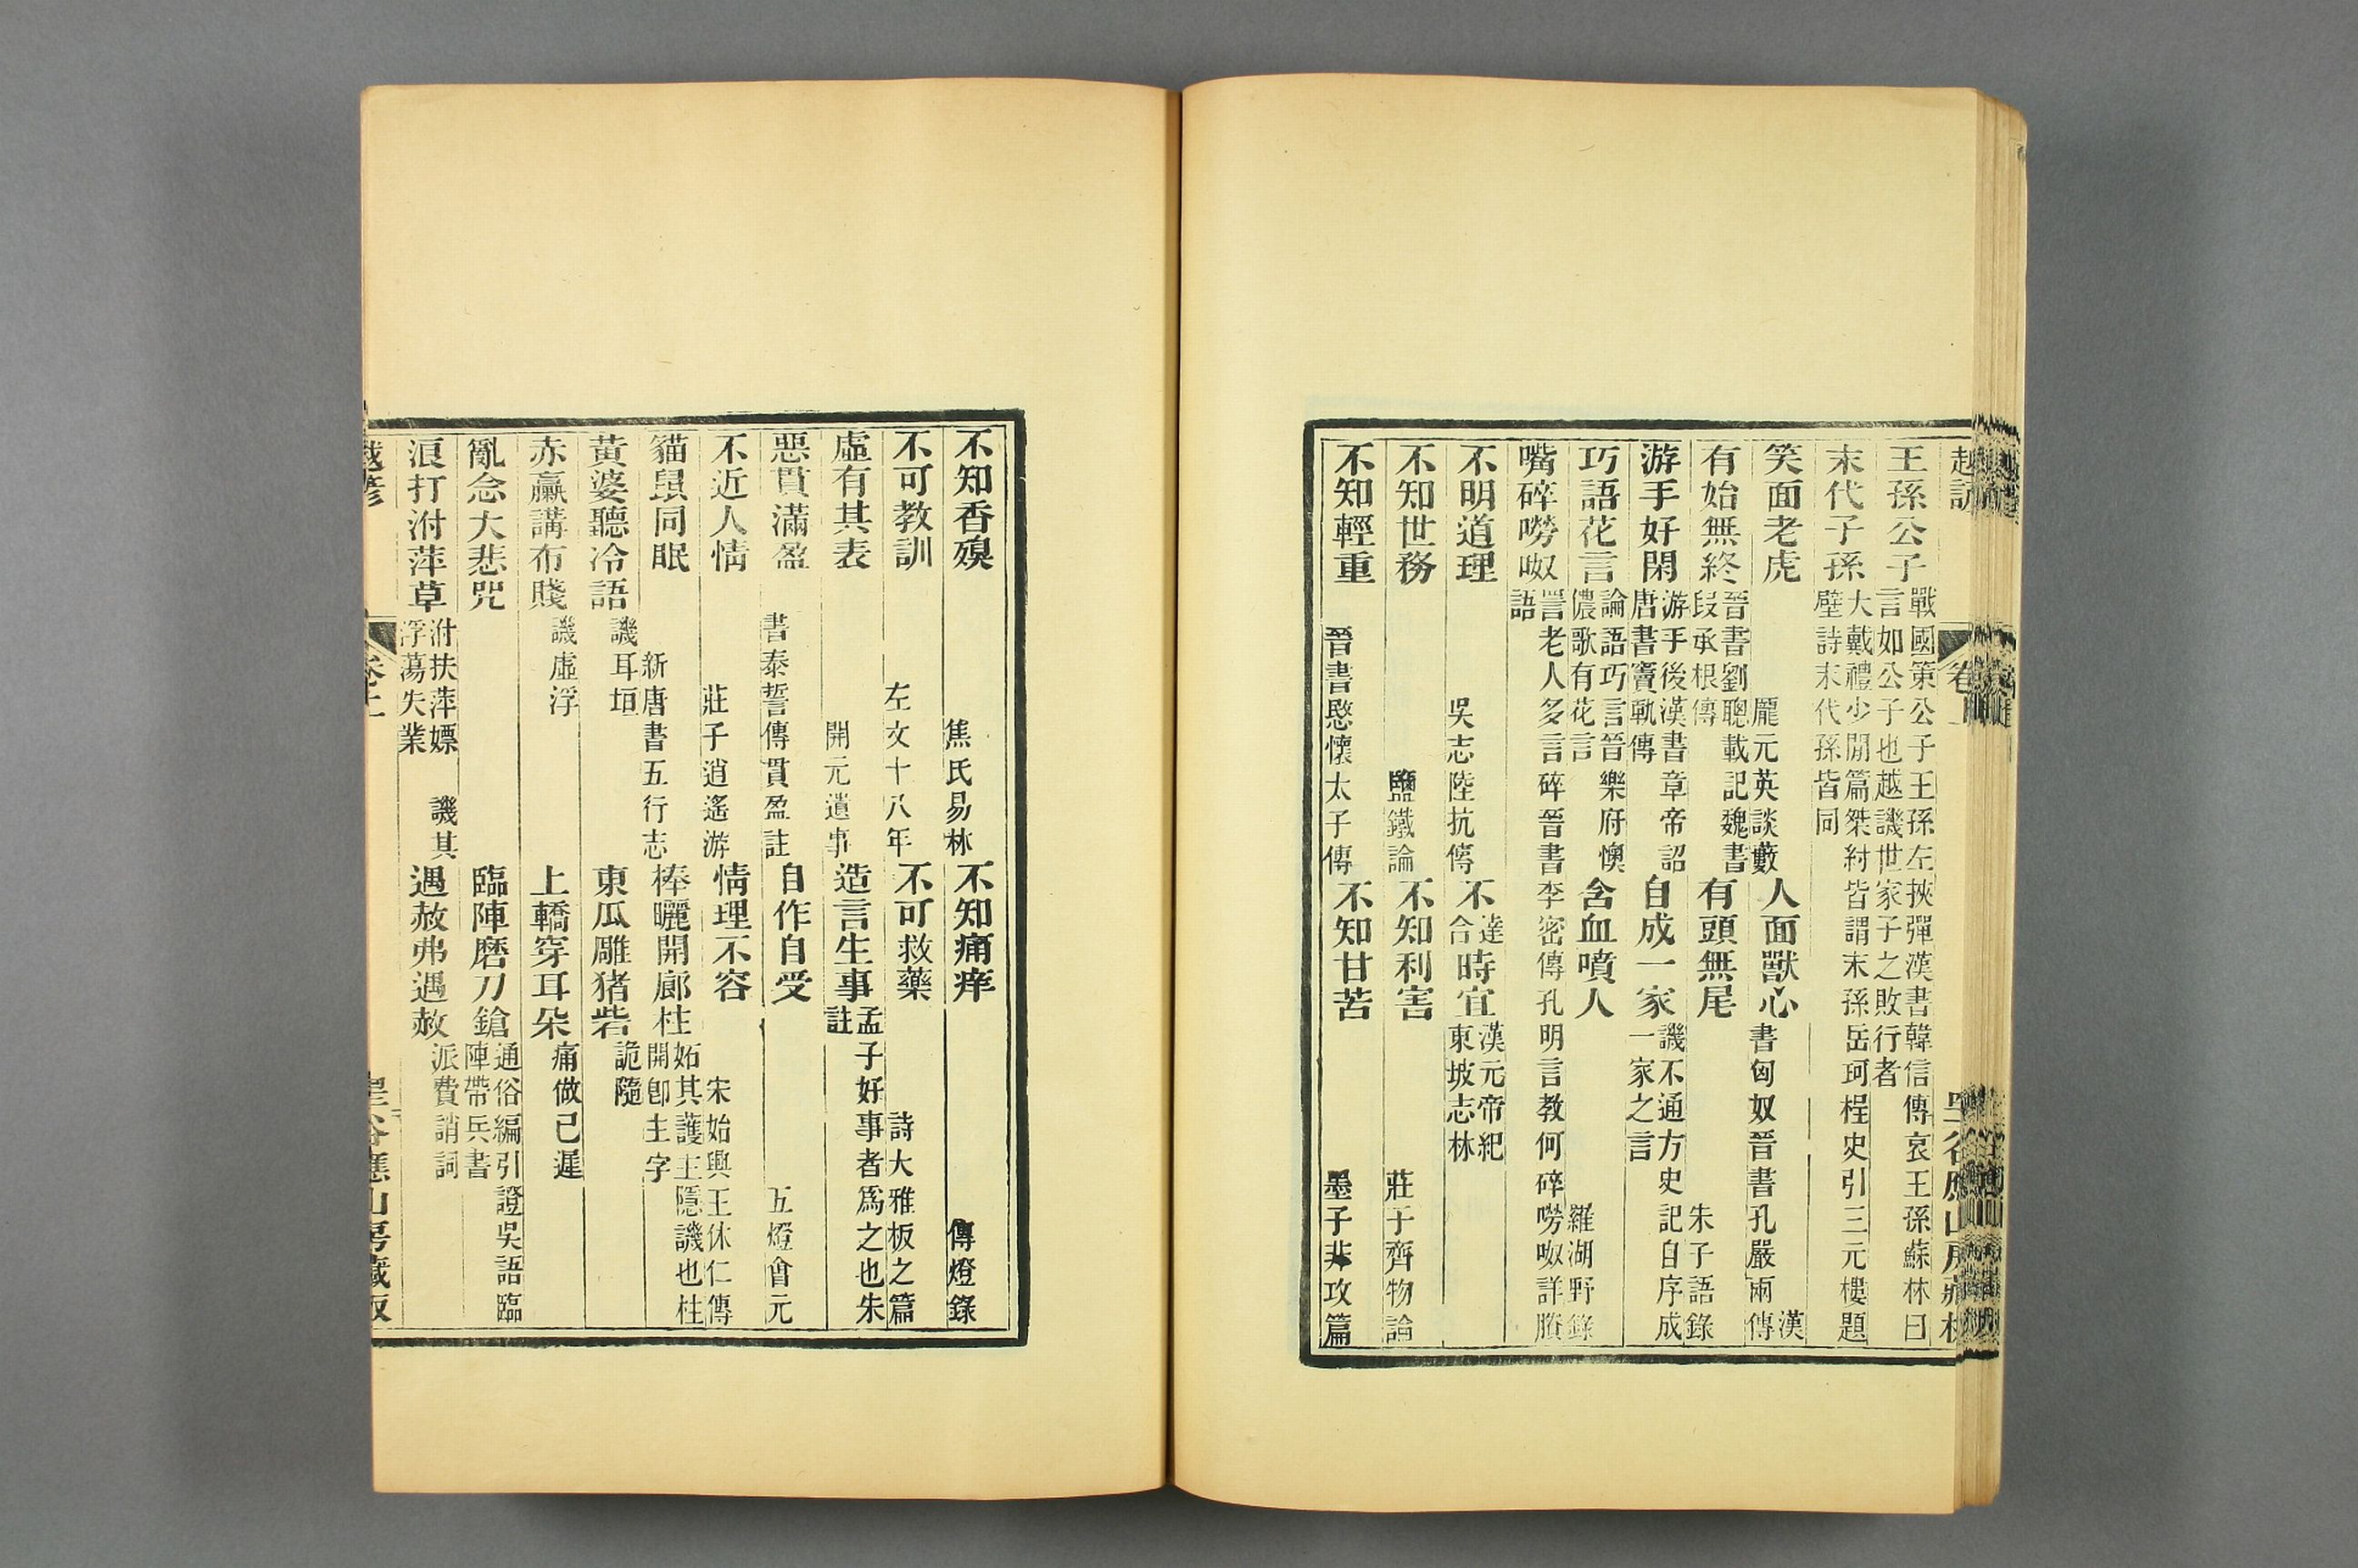 越諺
卷
王孫公子 戰國策公子王孫左挾彈漢書韓信傳哀王孫蘇林曰言如公子也越譏世家子之敗行者
末代子孫 大戴禮少閒篇桀紂皆謂末孫岳珂桯史引三元樓題壁詩末代孫皆同
笑面老虎 龐元英談藪 人面獸心 書匈奴晉書孔嚴兩傳 漢
有始無終 晉書劉聰載記魏書段承根傳 有頭無尾 朱子語錄
游手好閑 游手後漢書章帝詔唐書竇軌傳 自成一家 譏不通方史記自序成一家之言
巧語花言 論語巧言晉樂府懊儂歌有花言 含血噴人 羅湖野錄
嘴碎嘮呶 詈老人多言碎晉書李密傳孔明言教何碎嘮呶詳賸語
不明道理 吳志陸抗傳 不達合時宜 漢元帝紀東坡志林
不知世務 鹽鐵論 不知利害 莊子齊物論
不知輕重 晉書愍懷太子傳 不知甘苦 墨子非攻篇
不知香殠 焦氏易林 不知痛痒 傳燈錄
不可教訓 左文十八年 不可救藥 詩大雅板之篇
虛有其表 開元遺事 造言生事 孟子好事者為之也朱註
惡貫滿盈 書泰誓傳貫盈註 自作自受 五燈會元
不近人情 莊子逍遙游 情理不容 宋始興王休仁傳
貓鼠同眠 新唐書五行志 棒曬開廊柱 妬其護主隱譏也柱開卽主字
黃婆聽冷語 譏耳垣 東瓜雕猪砦 詭隨
赤羸講布賤 譏虛浮 上轎穿耳朵 痛做已遲
亂念大悲咒 臨陣磨刀鎗 通俗編引證吳語臨陣帶兵書
浪打泭萍草 泭扶萍嫖浮蕩失業 譏其 遇赦弗遇赦 派費誚詞
越諺
卷上
谷應山房藏版